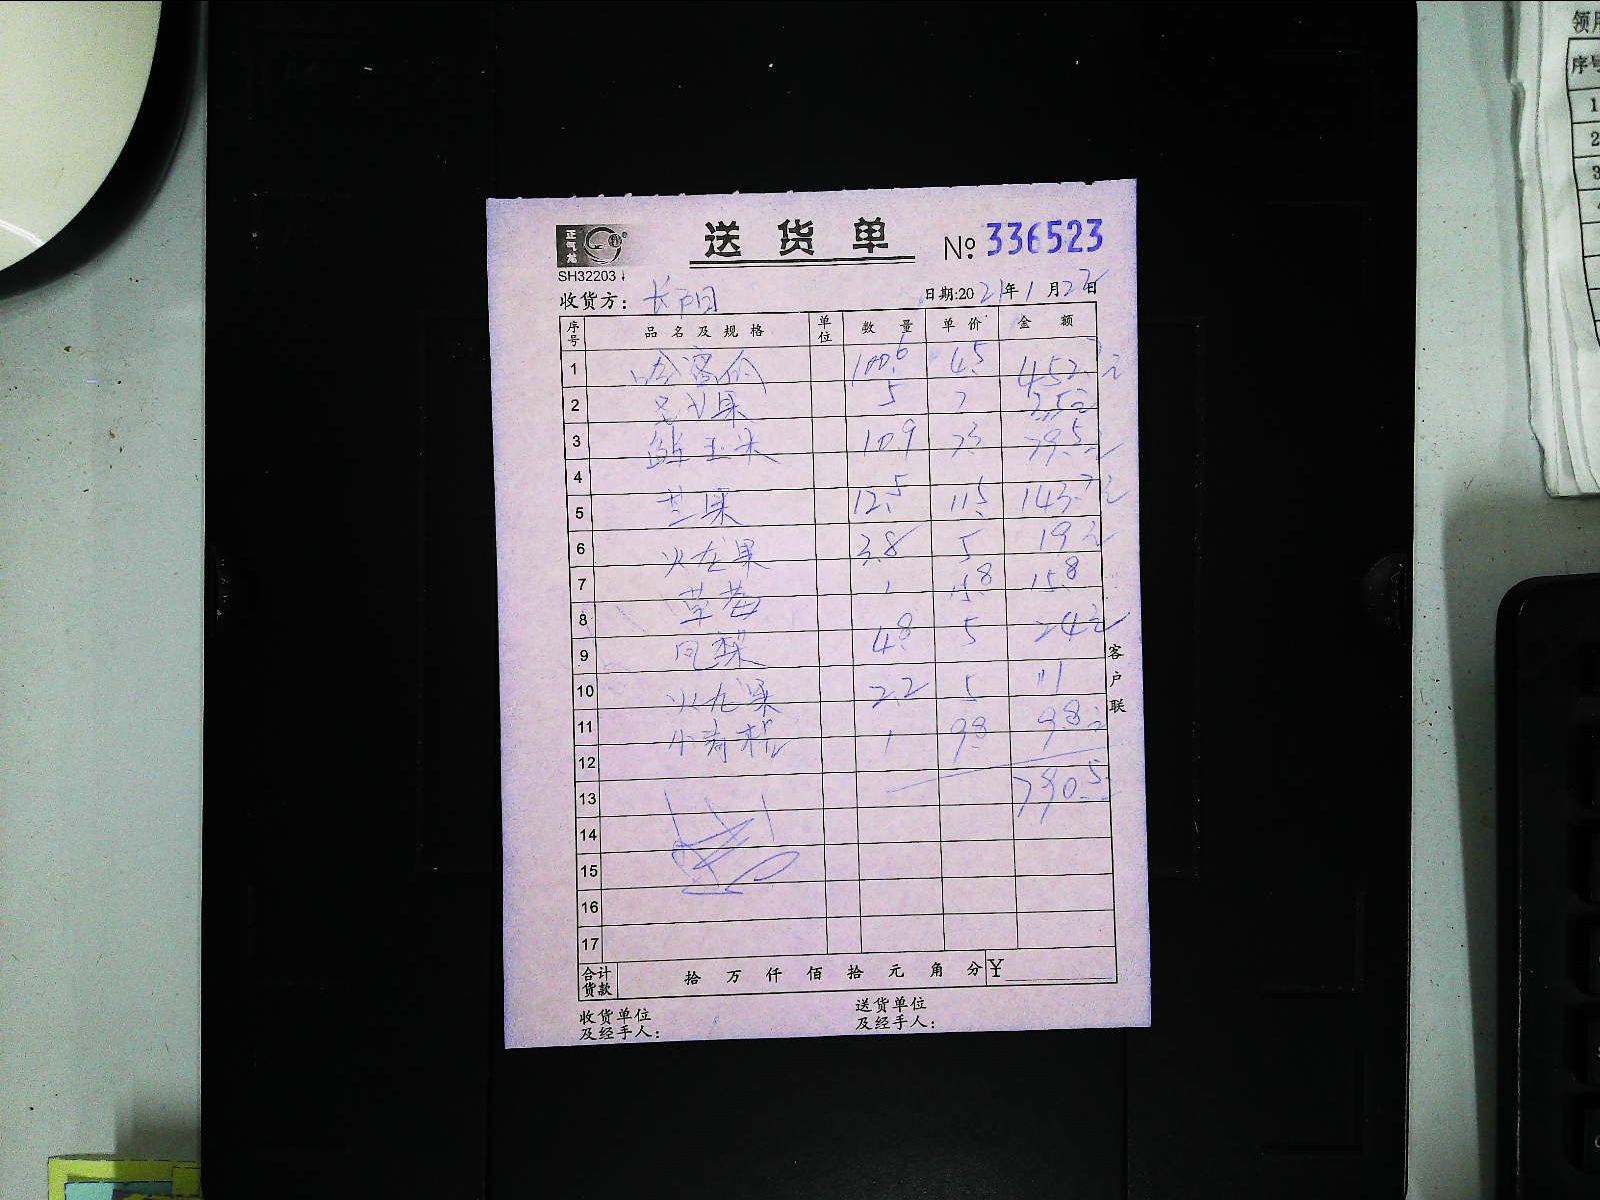 领用
序号
1
2
3
正气龙
SH32203
送货单
№ 336523
收货方：长阳
日期:2021年1月22日
序号 品名及规格 单位 数量 单价 金额
1 哈密瓜 100.6 4.5 452.7元
2 百香果 5 7 35元
3 鲜玉米 10.9 7.3 79.5元
4
5 芒果 12.5 11.5 143.7元
6 火龙果 3.8 5 19元
7 草莓 1 15.8 15.8
8
9 凤梨 4.8 5 24元
10 火龙果 2.2 5 11
11 小青桔 1 9.8 9.8元
12
13 790.5
14
15
16
17
合计货款 拾万仟佰拾元角分 ¥
收货单位及经手人：
送货单位及经手人：
客户联